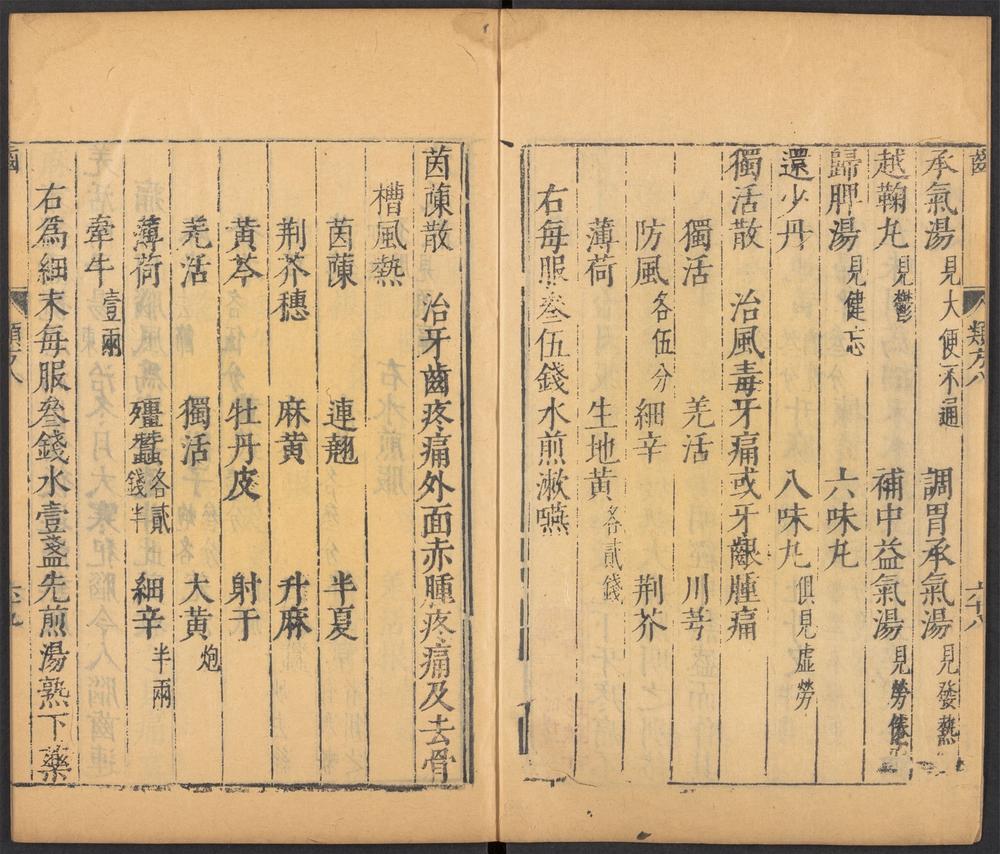 齒 類方八 六十八
承氣湯 見大便不通 調胃承氣湯 見發熱
越鞠丸 見鬱 補中益氣湯 見勞倦
歸脾湯 見健忘 六味丸
還少丹 八味丸 俱見虛勞
獨活散 治風毒牙痛或牙齦腫痛
獨活 羌活 川芎
防風 各伍分 細辛 荆芥
薄荷 生地黄 各貳錢
右每服叁伍錢水煎漱嚥
茵蔯散 治牙齒疼痛外面赤腫疼痛及去骨
槽風熱
茵蔯 連翹 半夏
荆芥穗 麻黄 升麻
黄芩 牡丹皮 射干
羌活 獨活 大黄 炮
薄荷 殭蠶 各貳錢半 細辛 半兩
牽牛 壹兩
右爲細末每服叁錢水壹盞先煎湯熟下藥
齒 類方八 六十九